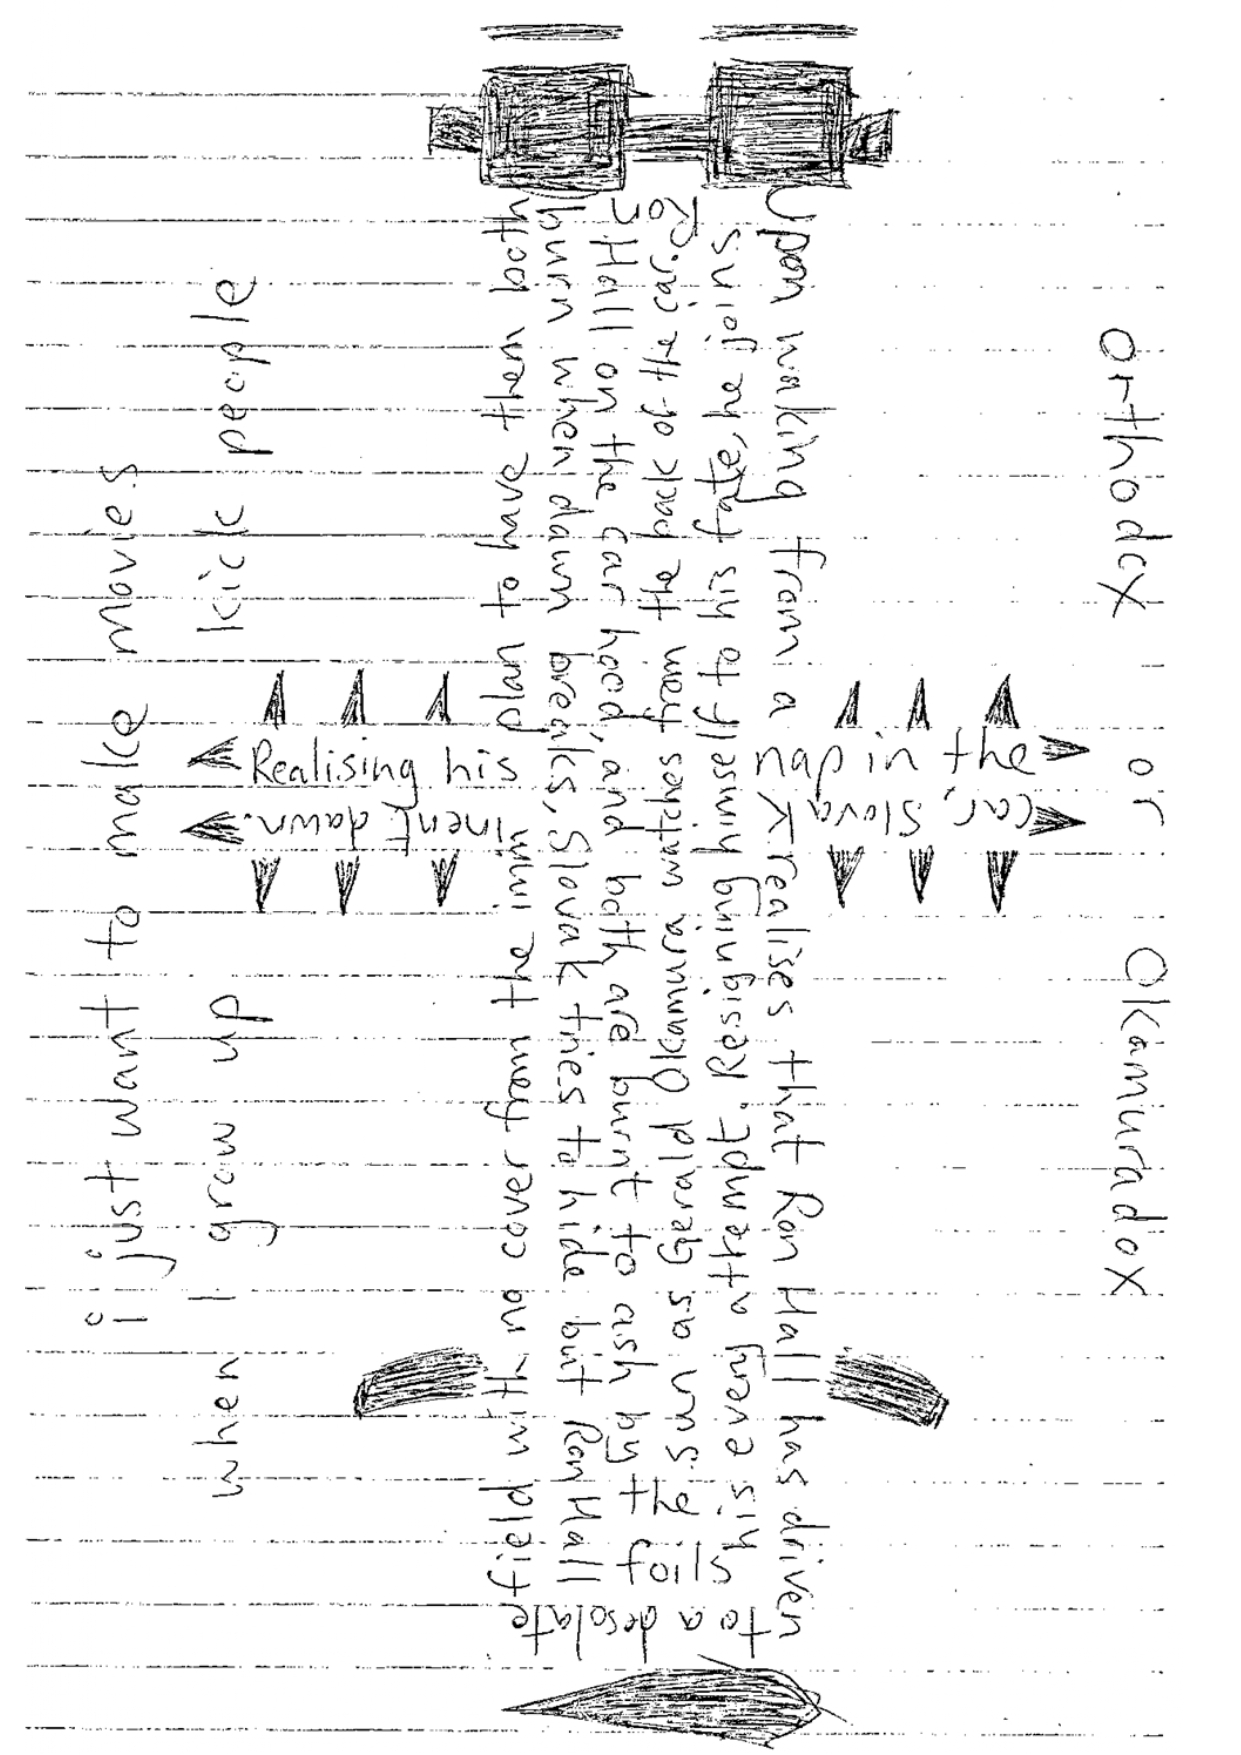 Orthodox or Okamuradox
Upon waking from a
nap in the
car, Slovak
realises that Ron Hall has driven
to a desolate
field with no cover from the imm
inent dawn.
Realising his
plan to have them both
burn when dawn breaks, Slovak tries to hide but Ron Hall
foils
his every attempt. Resigning himself to his fate, he joins
Ron
Hall on the car hood, and both are burnt to ash by the
sun as Gerald Okamura watches from the back of the car.
i just want to make movies
when I grow up kick people